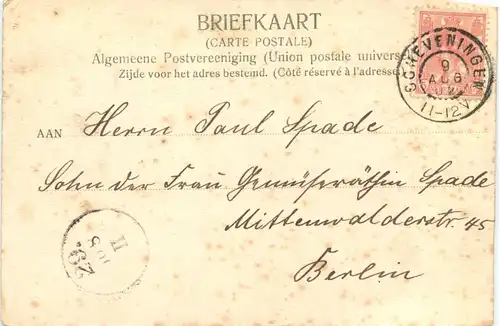 BRIEFKAART
(CARTE POSTALE)
Algemeene Postvereeniging (Union postale univers
Zijde voor het adres bestemd. (Côté réservé à l'adresse
SCHEVENINGEN
9
AUG
11-12V
AAN Herrn Paul Spade
Sohn der Frau Spade
Mittenwalderstr. 45
Berlin